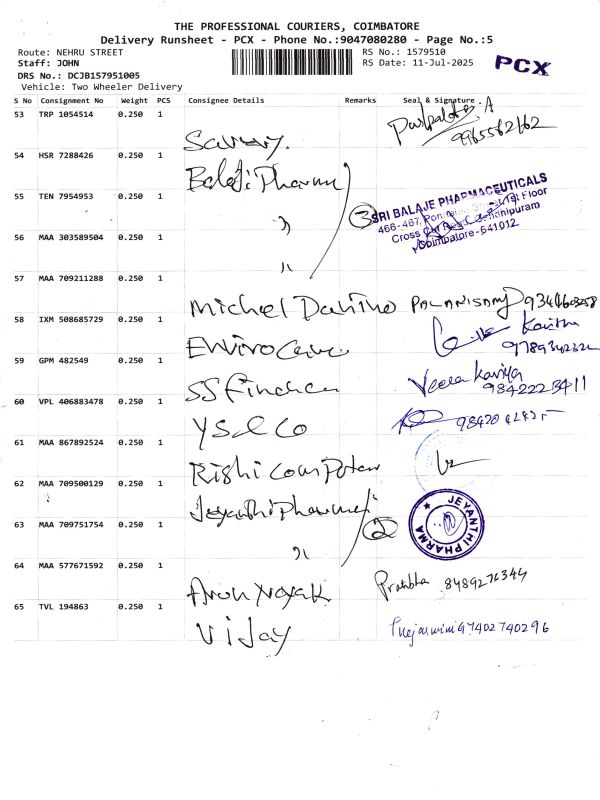 THE PROFESSIONAL COURIERS, COIMBATORE
Delivery Runsheet - PCX - Phone No.:9047080280 - Page No.:5
Route: NEHRU STREET
RS No.: 1579510
Staff: JOHN
RS Date: 11-Jul-2025
PCX
DRS No.: DCJB157951005
Vehicle: Two Wheeler Delivery
S No Consignment No Weight PCS Consignee Details Remarks Seal & Signature
53 TRP 1054514 0.250 1
9965562162
54 HSR 7288426 0.250 1
Balaji Pharma
55 TEN 7954953 0.250 1
3
SRI BALAJE PHARMACEUTICALS
466-467, Floor
Cross Gandhipuram
Coimbatore-641012.
〃
56 MAA 303589504 0.250 1
〃
57 MAA 709211288 0.250 1
Michel PALANISAMY
58 IXM 508685729 0.250 1
Enviro Care Kavitha
59 GPM 482549 0.250 1
SS Finchem Veera Kaviya
9842223411
60 VPL 406883478 0.250 1
YS & Co
61 MAA 867892524 0.250 1
Rishi Computer
62 MAA 709500129 0.250 1
Jeyanthi Pharma
2
JEYANTHI PHARMA
63 MAA 709751754 0.250 1
〃
64 MAA 577671592 0.250 1
Arun Nayak Pratibha 8489276344
65 TVL 194863 0.250 1
Vijay 97402740296